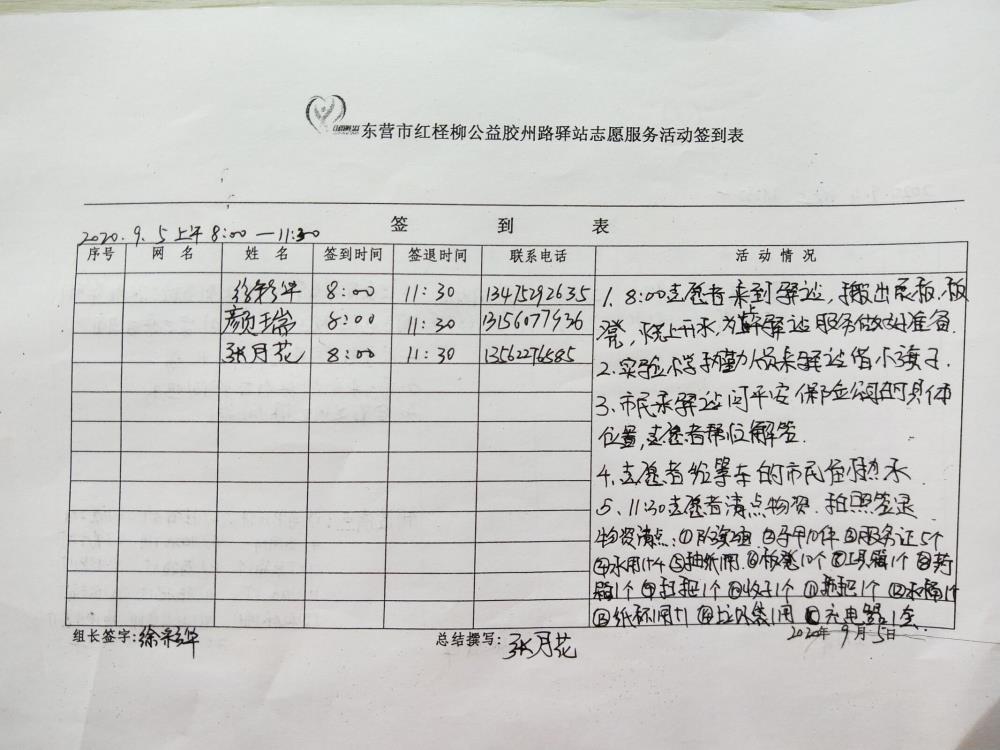 东营市红柽柳公益胶州路驿站志愿服务活动签到表
签 到 表
2020.9.5上午8:00—11:30
序号 网名 姓名 签到时间 签退时间 联系电话 活动情况
徐彩华 8:00 11:30 13475292635
颜瑞 8:00 11:30 13156077936
张月花 8:00 11:30 13562276585
1. 8:00志愿者来到驿站,搬出展板,板
凳,烧上开水,为驿站服务做好准备.
2.实验小学执勤人员来驿站借小旗子.
3.市民来驿站问平安保险公司的具体
位置,志愿者帮忙解答.
4.志愿者给等车的市民倒热水
5、11:30志愿者清点物资.拍照签退
物资清点:① ②马甲10件 ③服务证5个
④水 ⑤抽纸 ⑥板凳10个 ⑦工具箱1个 ⑧药
箱1个 ⑨打气筒1个 ⑩ 1个 ⑪拖把1个 ⑫水桶1个
⑬纸杯 ⑭垃圾袋 ⑮充电器1套.
组长签字:徐彩华 总结撰写:张月花 2020年9月5日